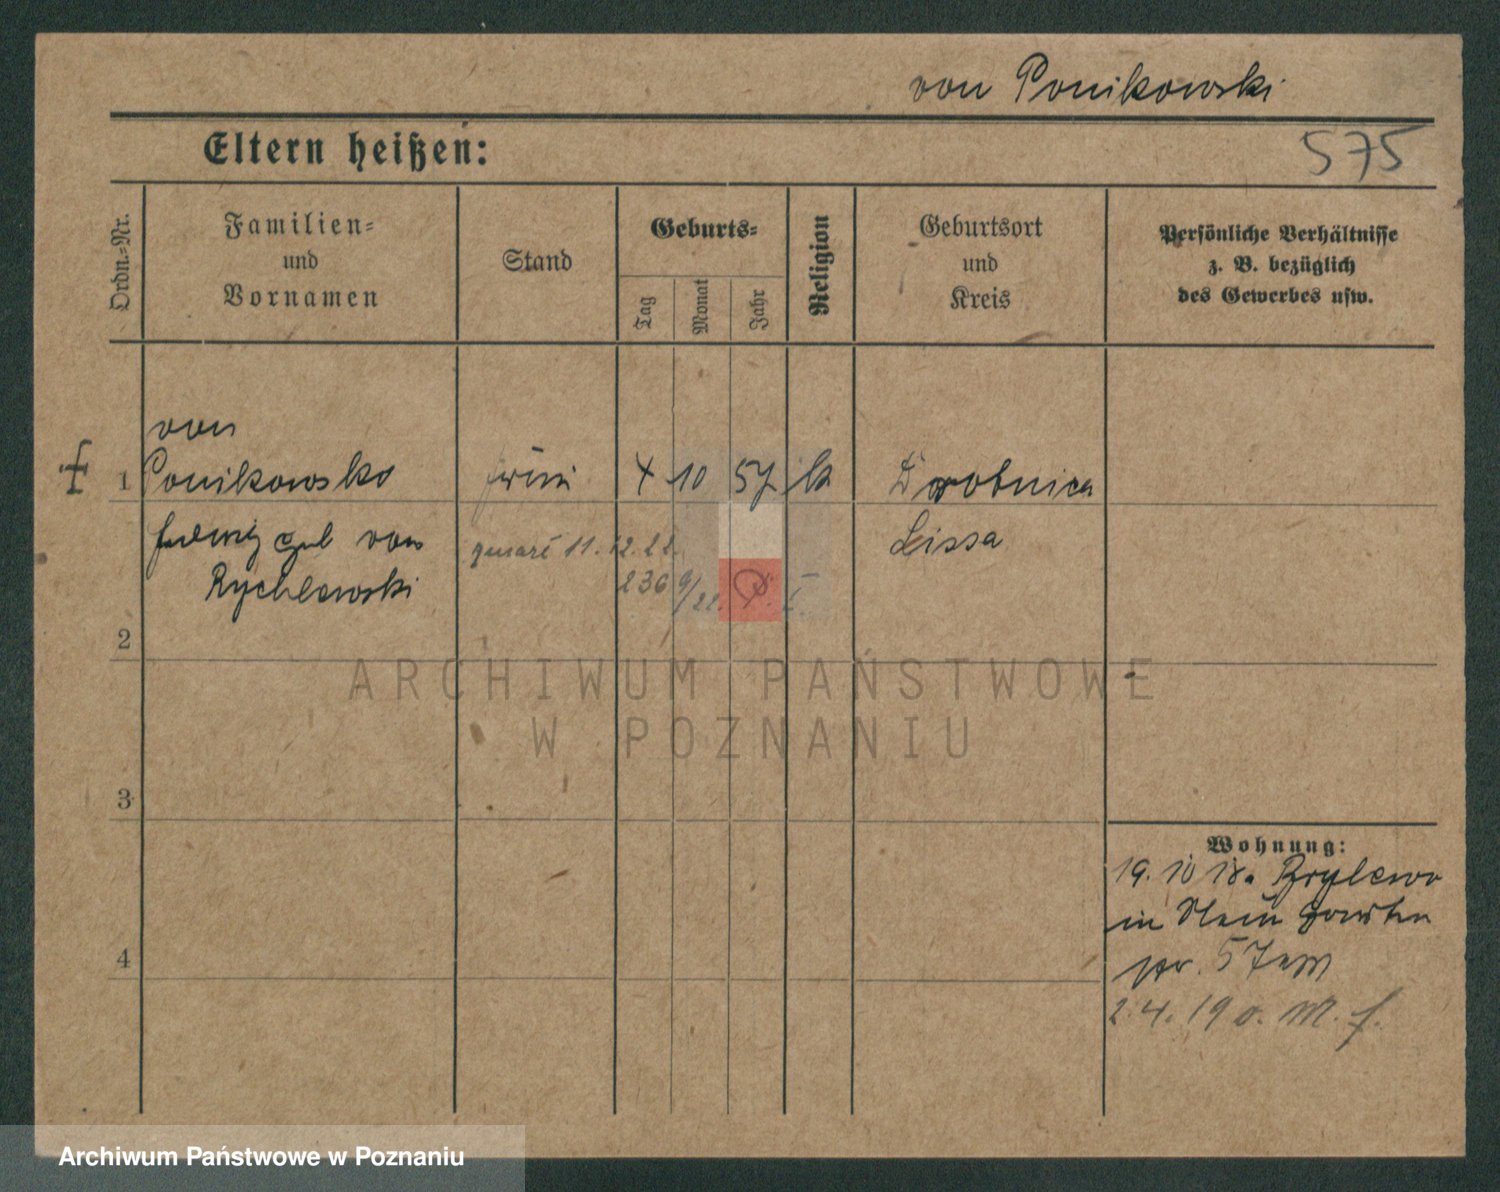 von Ponikowski
575
Eltern heißen:
Ordn.-Nr.
Familien-
und
Vornamen
Stand
Geburts-
Tag
Monat
Jahr
Religion
Geburtsort
und
Kreis
Persönliche Verhältnisse
z. B. bezüglich
des Gewerbes usw.
von
1 Ponikowsko 10 57 k Drobnica
geb von Lissa
Rychlewski
zmarł 11.12.22.
236 9/22.
2
ARCHIWUM PAŃSTWOWE
W POZNANIU
3
Wohnung:
19. 10 18.
in
4
57
2.4.19
Archiwum Państwowe w Poznaniu